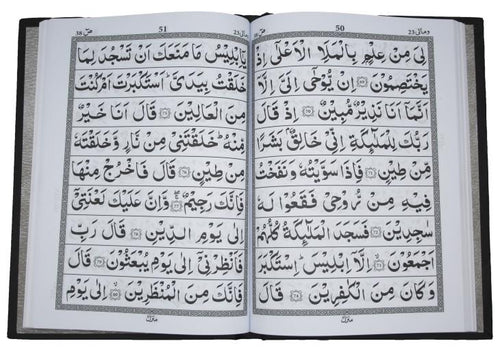 ومالی 23 50 ص 38
لِیَ مِنْ عِلْمٍۭ بِالْمَلَاِ الْاَعْلٰۤی اِذْ
یَخْتَصِمُوْنَ اِنْ یُّوْحٰۤی اِلَیَّ اِلَّاۤ
اَنَّمَاۤ اَنَا نَذِیْرٌ مُّبِیْنٌ اِذْ قَالَ
رَبُّكَ لِلْمَلٰٓئِكَةِ اِنِّیْ خَالِقٌۢ بَشَرًا
مِّنْ طِیْنٍ فَاِذَا سَوَّیْتُهٗ وَنَفَخْتُ
فِیْهِ مِنْ رُّوْحِیْ فَقَعُوْا لَهٗ
سٰجِدِیْنَ فَسَجَدَ الْمَلٰٓئِكَةُ كُلُّهُمْ
اَجْمَعُوْنَ اِلَّاۤ اِبْلِیْسَ ؕ اِسْتَكْبَرَ
وَكَانَ مِنَ الْكٰفِرِیْنَ قَالَ
منزل
ومالی 23 51 ص 38
یٰۤاِبْلِیْسُ مَا مَنَعَكَ اَنْ تَسْجُدَ لِمَا
خَلَقْتُ بِیَدَیَّ ؕ اَسْتَكْبَرْتَ اَمْ كُنْتَ
مِنَ الْعَالِیْنَ قَالَ اَنَا خَیْرٌ
مِّنْهُ ؕ خَلَقْتَنِیْ مِنْ نَّارٍ وَّخَلَقْتَهٗ
مِنْ طِیْنٍ قَالَ فَاخْرُجْ مِنْهَا
فَاِنَّكَ رَجِیْمٌ وَّاِنَّ عَلَیْكَ لَعْنَتِیْۤ
اِلٰی یَوْمِ الدِّیْنِ قَالَ رَبِّ
فَاَنْظِرْنِیْۤ اِلٰی یَوْمِ یُبْعَثُوْنَ قَالَ
فَاِنَّكَ مِنَ الْمُنْظَرِیْنَ اِلٰی یَوْمِ
منزل